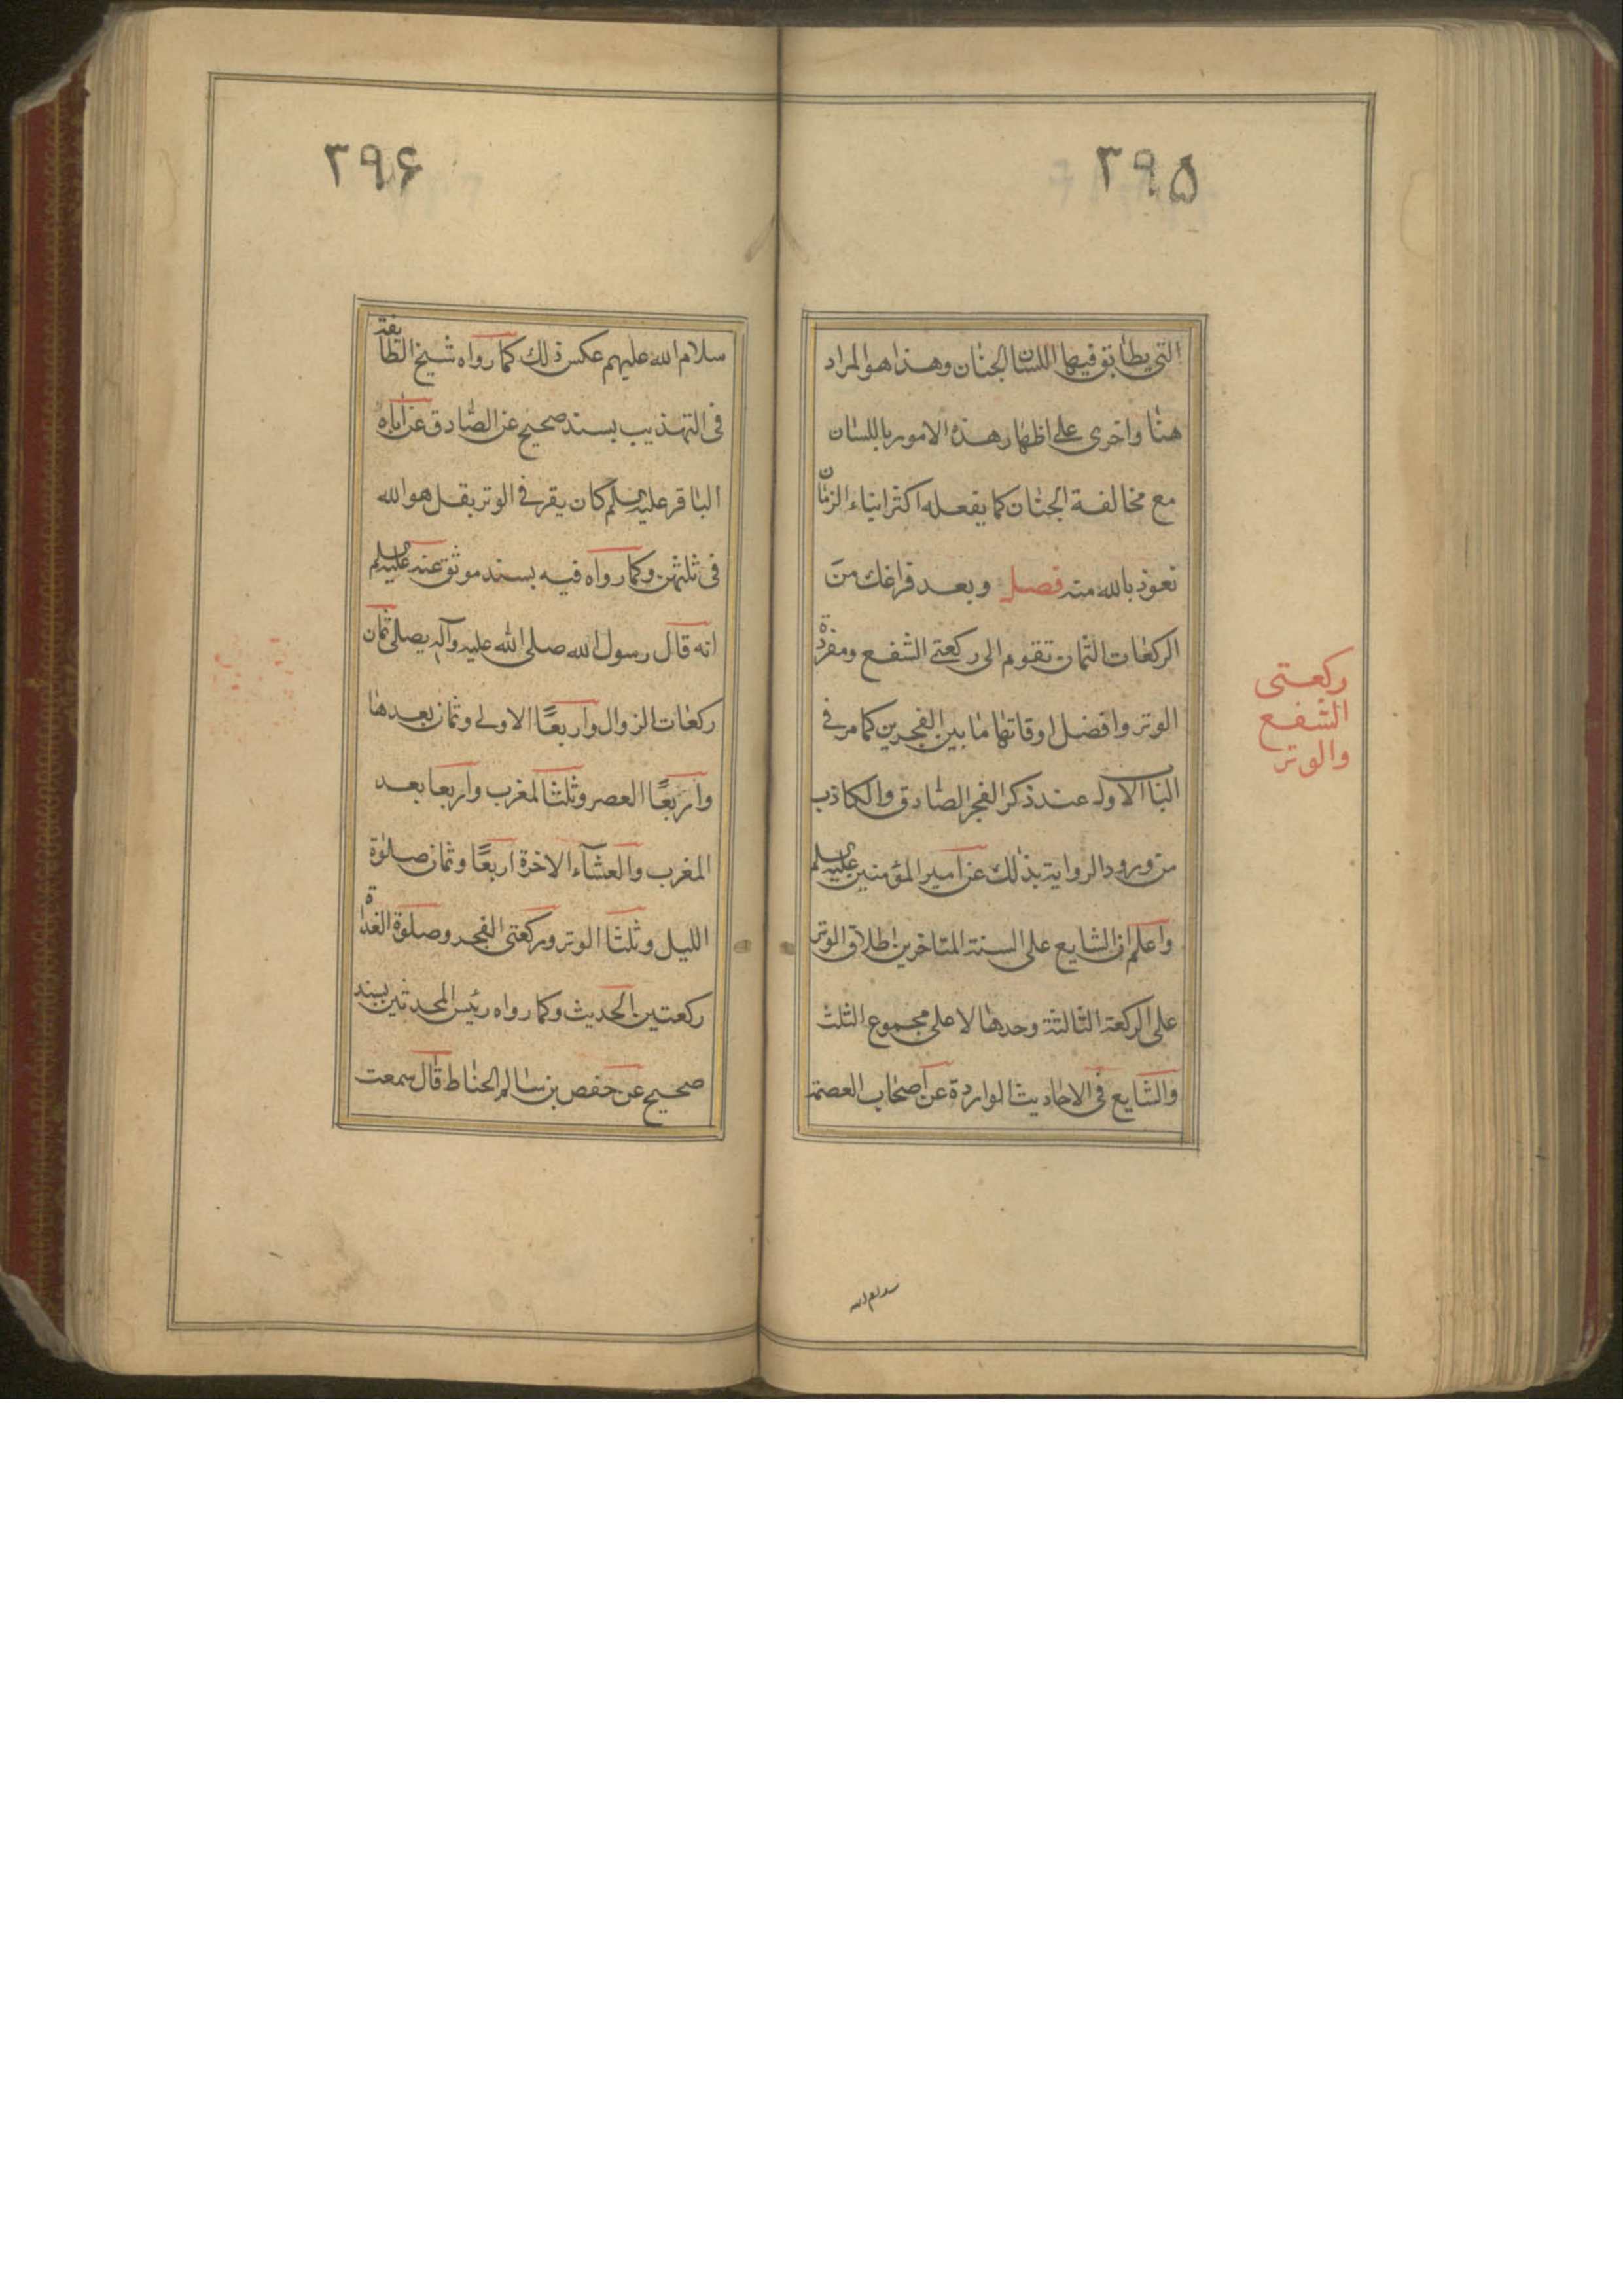 ۳۹۵
التي يطابق فيها اللسان الجنان وهذا هو المراد
هنا واخرى على اظهار هذه الامور باللسان
مع مخالفة الجنان كما يفعله اكثر ابناء الزمان
نعوذ بالله منه فصل وبعد فراغك من
الركعات الثمان تقوم الى ركعتي الشفع ومفردة
الوتر وافضل اوقاتها ما بين الفجرين كما مر في
الباب الاول عند ذكر الفجر الصادق والكاذب
من ورود الرواية بذلك عن امير المؤمنين عليه السلم
واعلم ان الشايع على السنة المتاخرين اطلاق الوتر
على الركعة الثالثة وحدها لا على مجموع الثلث
والشايع في الاحاديث الواردة عن اصحاب العصمة
ركعتى
الشفع
والوتر
سلام الله
۳۹۶
سلام الله عليهم عكس ذلك كما رواه شيخ الطائفة
في التهذيب بسند صحيح عن الصادق عن اباه
الباقر عليه السلم كان يقر في الوتر بقل هو الله
في ثلثهن وكما رواه فيه بسند موثق عنه عليه السلم
انه قال رسول الله صلى الله عليه وآله يصلى ثمان
ركعات الزوال واربعًا الاولى وثمان بعدها
واربعًا العصر وثلثا المغرب واربعا بعد
المغرب والعشآء الاخرة اربعًا وثمان صلوة
الليل وثلثا الوتر وركعتى الفجر وصلوة الغداة
ركعتين الحديث وكما رواه رئيس المحدثين بسند
صحيح عن حفص بن سالم الحناط قال سمعت